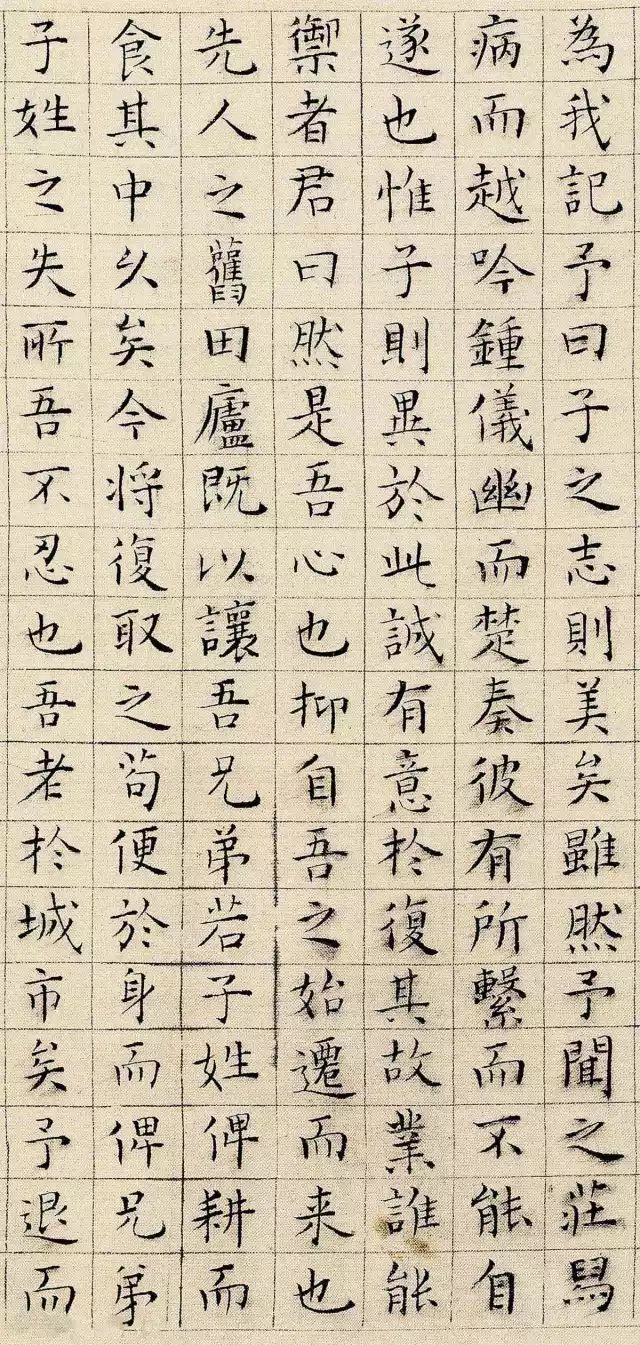 為我記予曰子之志則美矣雖然予聞之莊舃
病而越吟鍾儀幽而楚奏彼有所繫而不能自
遂也惟子則異於此誠有意於復其故業誰能
禦者君曰然是吾心也抑自吾之始遷而来也
先人之舊田廬既以讓吾兄弟若子姓俾耕而
食其中久矣今将復取之苟便於身而俾兄弟
子姓之失所吾不忍也吾老於城市矣予退而